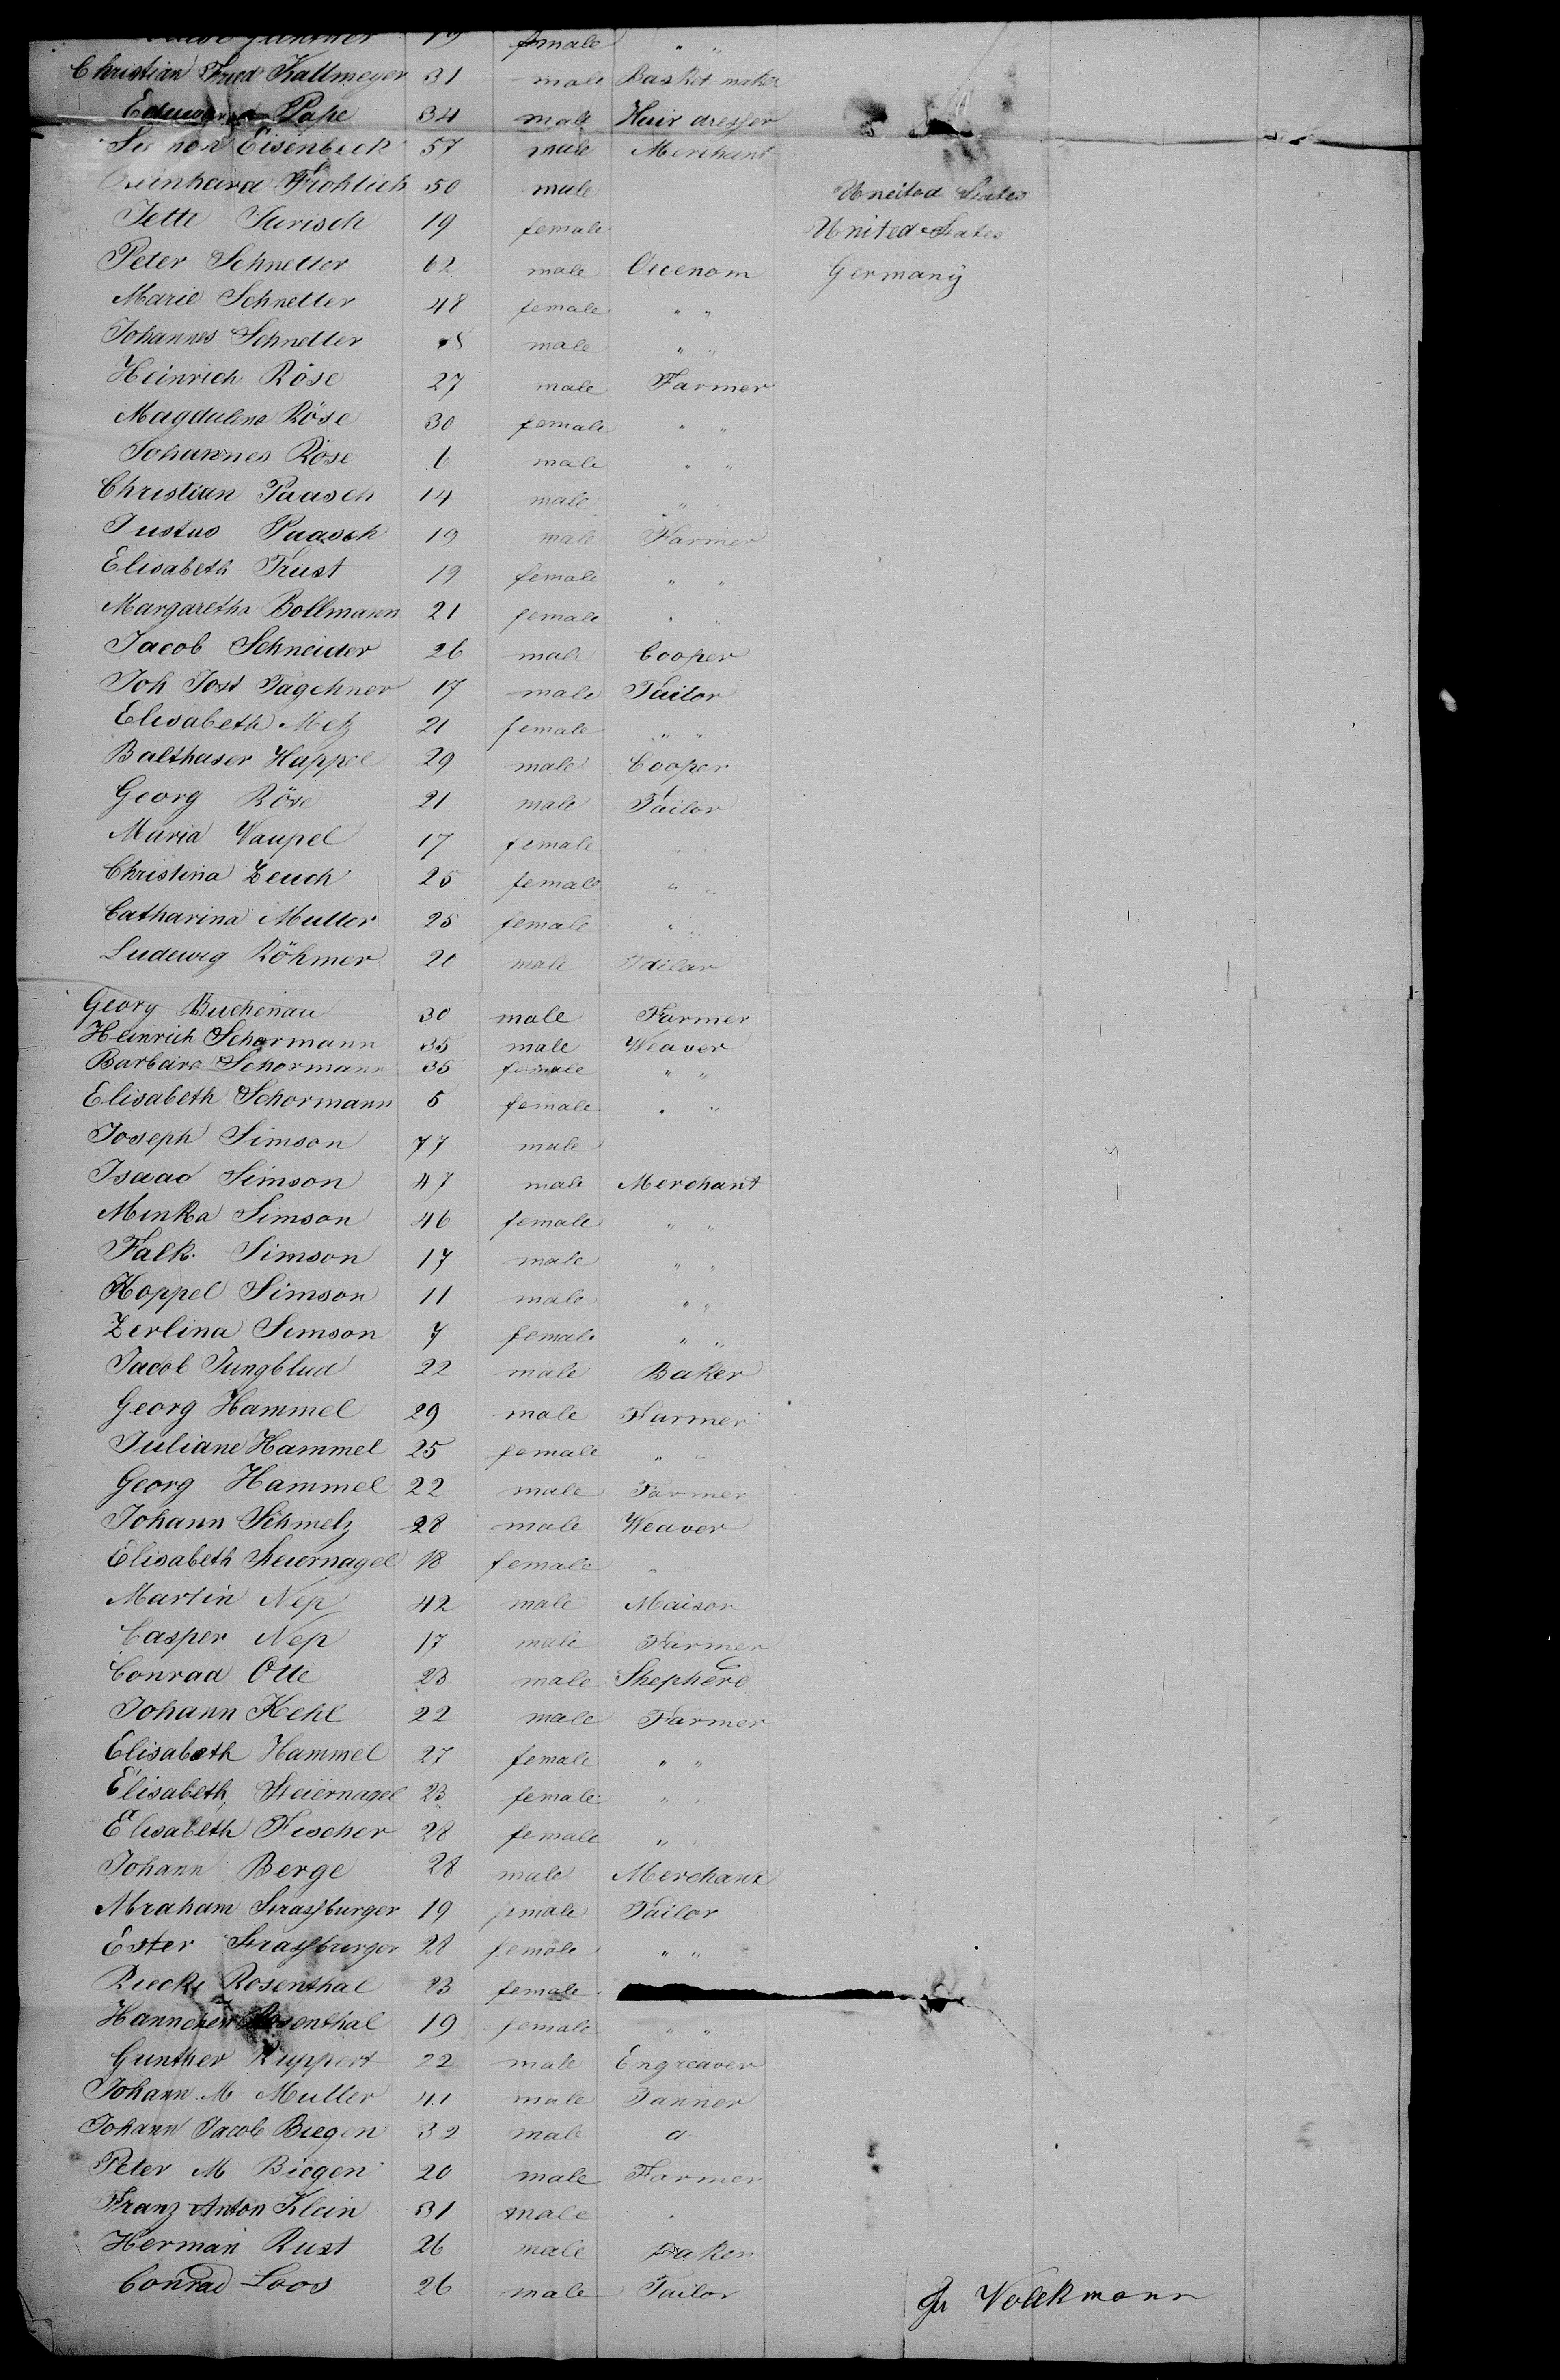 19 female " "
Christian Fried Kallmeyer 31 male Basket maker
Eduward Pape 34 male Hair dresser
Simon Eisenbeck 57 male Merchant
Reinhard Frohlich 50 male Uneited States
Jette Jurisch 19 female United States
Peter Schnetter 62 male Oecenom Germany
Marie Schnetter 48 female " "
Johannes Schnetter 18 male " "
Heinrich Röse 27 male Farmer
Magdalena Röse 30 female " "
Johannes Röse 6 male " "
Christian Paasch 14 male " "
Justus Paasch 19 male Farmer
Elisabeth Trust 19 female " "
Margaretha Bollmann 21 female " "
Jacob Schneider 26 male Cooper
Joh Jost Tagehner 17 male Tailor
Elisabeth Metz 21 female " "
Balthaser Happel 29 male Cooper
Georg Röse 21 male Tailor
Maria Vaupel 17 female " "
Christina Zeuch 25 female " "
Catharina Muller 25 female " "
Ludewig Röhmer 20 male Tailor
Georg Buchenau 30 male Farmer
Heinrich Schormann 35 male Weaver
Barbara Schormann 35 female " "
Elisabeth Schormann 5 female " "
Joseph Simson 77 male
Isaac Simson 47 male Merchant
Minka Simson 46 female " "
Falk Simson 17 male " "
Koppel Simson 11 male " "
Zerlina Simson 7 female " "
Jacob Jungblud 22 male Baker
Georg Hammel 29 male Farmer
Juliane Hammel 25 female " "
Georg Hammel 22 male Farmer
Johann Schmelz 28 male Weaver
Elisabeth Steuernagel 18 female "
Martin Nep 42 male Maison
Casper Nep 17 male Farmer
Conrad Otte 23 male Shepherd
Johann Kehl 22 male Farmer
Elisabeth Hammel 27 female " "
Elisabeth Steiernagel 23 female " "
Elisabeth Fischer 28 female " "
Johann Berge 28 male Merchant
Abraham Strassburger 19 male Tailor
Ester Strassburger 28 female " "
Riecke Rosenthal 23 female
Hannchen Rosenthal 19 female " "
Gunther Ruppert 22 male Engreaver
Johann M Muller 41 male Tanner
Johann Jacob Biegen 32 male a
Peter M Biegen 20 male Farmer
Franz Anton Klein 31 male "
Herman Rust 26 male Baker
Conrad Loos 26 male Tailor
Volckmann